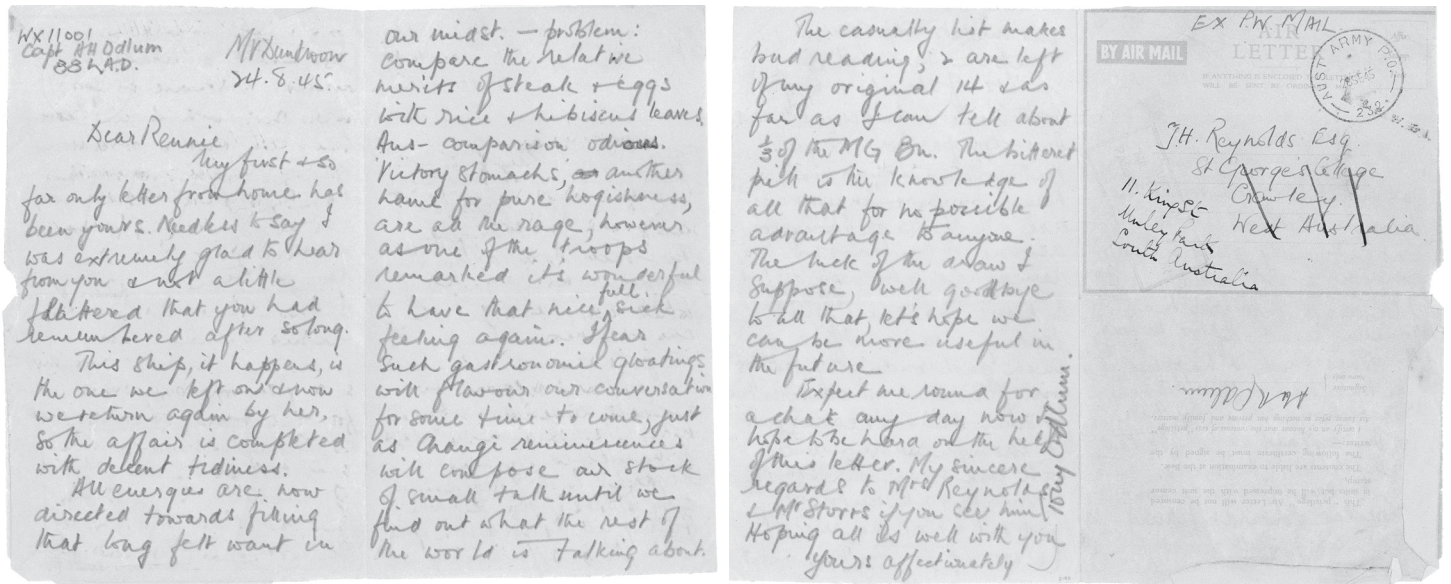 WX11001
Capt AH Odlum
88 LAD.
MV Duntroon
24.8.45.
Dear Rennie
My first & so
far only letter from home has
been yours. Needless to say I
was extremely glad to hear
from you & not a little
flattered that you had
remembered after so long.
This ship, it happens, is
the one we left on & now
we return again by her.
So the affair is completed
with decent tidiness.
All energies are now
directed towards filling
that long felt want in
our midst. — problem:
compare the relative
merits of steak & eggs
with rice & hibiscus leaves.
Ans - comparison odious.
Victory Stomachs, another
name for pure hogishness,
are all the rage, however
as one of the troops
remarked it's wonderful
to have that nice full sick
feeling again. I fear
Such gastronomic gloatings
will flavour our conversation
for some time to come, just
as Changi reminiscences
will compose our stock
of small talk until we
find out what the rest of
the world is talking about.
The casualty list makes
bad reading; 2 are left
of my original 14 & as
far as I can tell about
1/3 of the MG Bn. The bitterest
pill is the knowledge of
all that for no possible
advantage to anyone.
The luck of the draw I
Suppose, well goodbye
to all that, let's hope we
can be more useful in
the future
Expect me round for
a chat any day now
hope to be hard on the heels
of this letter. My sincere
regards to Mrs Reynolds
& Mr Storrs if you see him
Hoping all is well with you
Yours affectionately
Tony Odlum.
EX PW MAIL
BY AIR MAIL
AIR
LETTER
IF ANYTHING IS ENCLOSED
AUST ARMY P.O.
J.H. Reynolds Esq.
St George's College
Crawley.
West Australia
11. King St
Unley Park
South Australia